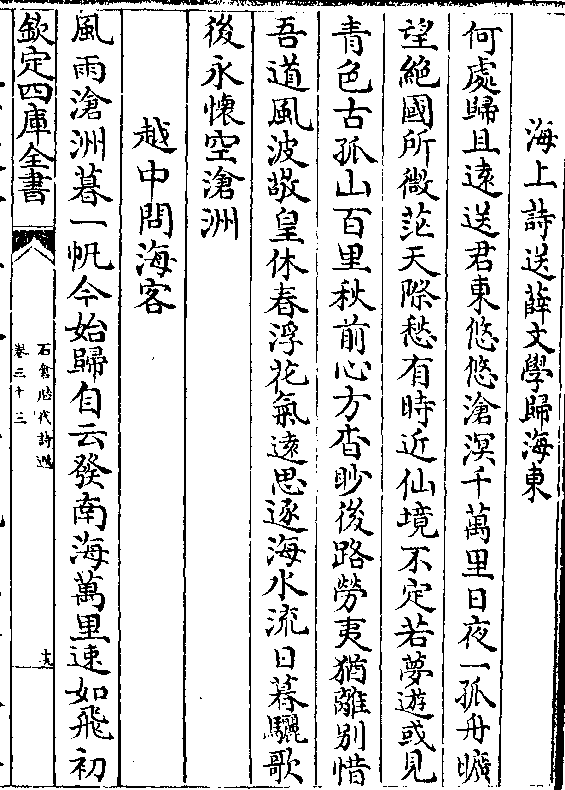 海上詩送薛文學歸海東
何處歸且遠送君東悠悠滄溟千萬里日夜一孤舟曠
望絶國所微茫天際愁有時近仙境不定若夢遊或見
青色古孤山百里秋前心方杳眇後路勞夷猶離別惜
吾道風波敬皇休春浮花氣遠思逐海水流日暮驪歌
後永懷空滄洲
越中問海客
風雨滄洲暮一帆今始歸自云發南海萬里速如飛初
欽定四庫全書
石倉歴代詩選
卷三十三
十九